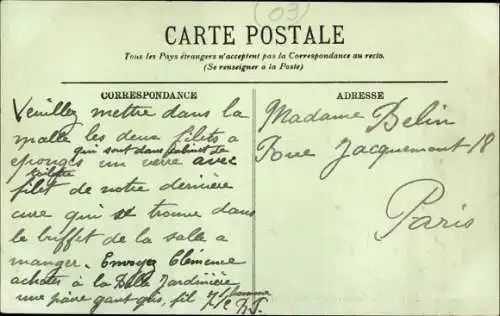 (03)
CARTE POSTALE
Tous les Pays étrangers n'acceptent pas la Correspondance au recto.
(Se renseigner a la Poste)
CORRESPONDANCE
Veuillez mettre dans la
malle les deux filets a
eponges qui sont dans cabinet de
toilette un verre avec
filet de notre dernière
cure qui se trouve dans
le buffet de la salle a
manger. Envoyez Clémence
acheter à la Belle Jardinière
une paire gants gris, fil 7 1/2 homme
ADRESSE
Madame Belin
Jacquemont 18
Paris